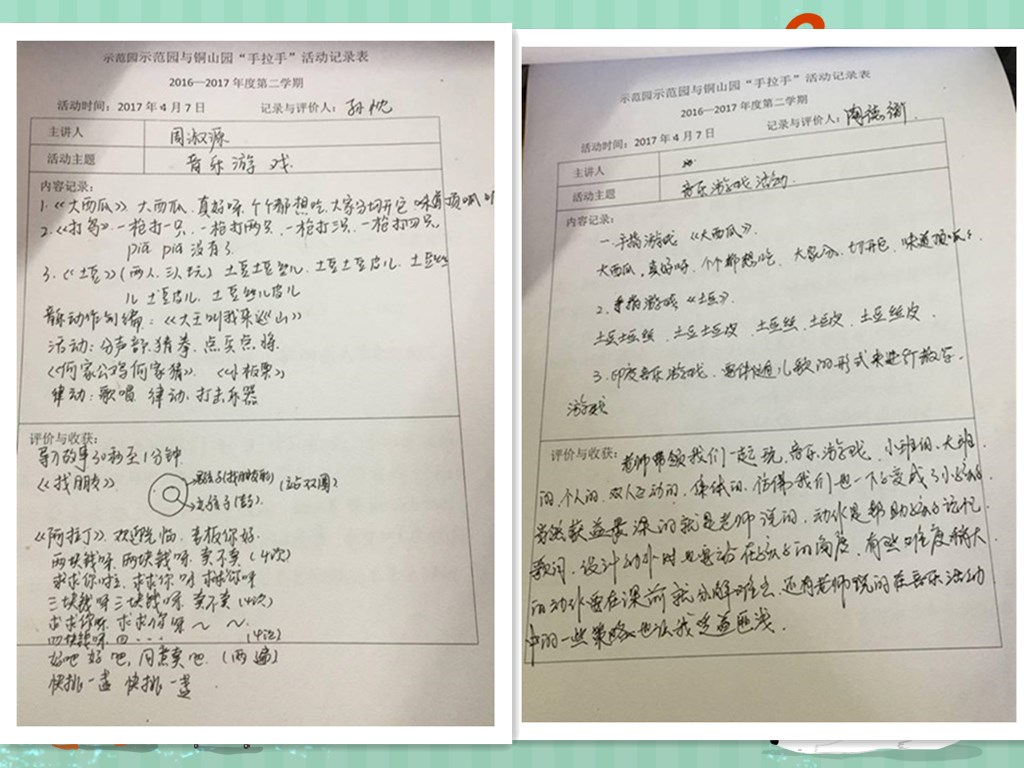 示范园示范园与铜山园“手拉手”活动记录表
2016—2017年度第二学期
活动时间：2017年4月7日 记录与评价人：孙忱
主讲人 周淑源
活动主题 音乐游戏
内容记录：
1.《大西瓜》大西瓜，真好呀，个个都想吃，大家分，切开它，味道顶呱
2.《打鸟》一枪打一只，一枪打两只，一枪打三只，一枪打四只
pia pia 没有了
3.《土豆》（两人、三人玩）土豆土豆丝儿，土豆土豆皮儿，土豆丝
儿土豆皮儿，土豆丝儿皮儿
音乐动作创编：《大王叫我来巡山》
活动：分声部，猜拳，点兵点将
《何家公鸡何家猜》
律动：歌唱 律动 打击乐器
评价与收获：
导入故事30秒至1分钟
《找朋友》 （站双圈）
《阿拉丁》欢迎光临，老板你好
两块钱呀，两块钱呀，卖不卖（4次）
求求你啦，求求你
三块钱呀三块钱呀，卖不卖（4次）
求求你呀，求求你呀～～
四块钱呀 四··· （4次）
好吧好吧，同意卖吧（两遍）
快排一盖 快排一盖
示范园示范园与铜山园“手拉手”活动记录表
2016—2017年度第二学期
活动时间：2017年4月7日 记录与评价人：
主讲人
活动主题 音乐游戏活动
内容记录：
一.手指游戏《大西瓜》
大西瓜，真好呀，个个都想吃，大家分，切开它，味道顶呱
2.手指游戏《土豆》
土豆土豆丝，土豆土豆皮，土豆丝，土豆皮，土豆丝皮
3.印度音乐游戏，要伴随儿歌的形式来进行教学
游戏
评价与收获：老师带领我们一起玩音乐游戏，小班的、大班
的，个人的，双人互动的，集体的，仿佛我们也一下子变成了小孩子
当然获益最深的就是老师说的，动作是帮助孩子记忆
歌词，设计动作时也要站在孩子的角度，有些难度稍大
的动作要在课前就分解难点，还有老师说的在音乐活动
中的一些策略也让我受益匪浅。